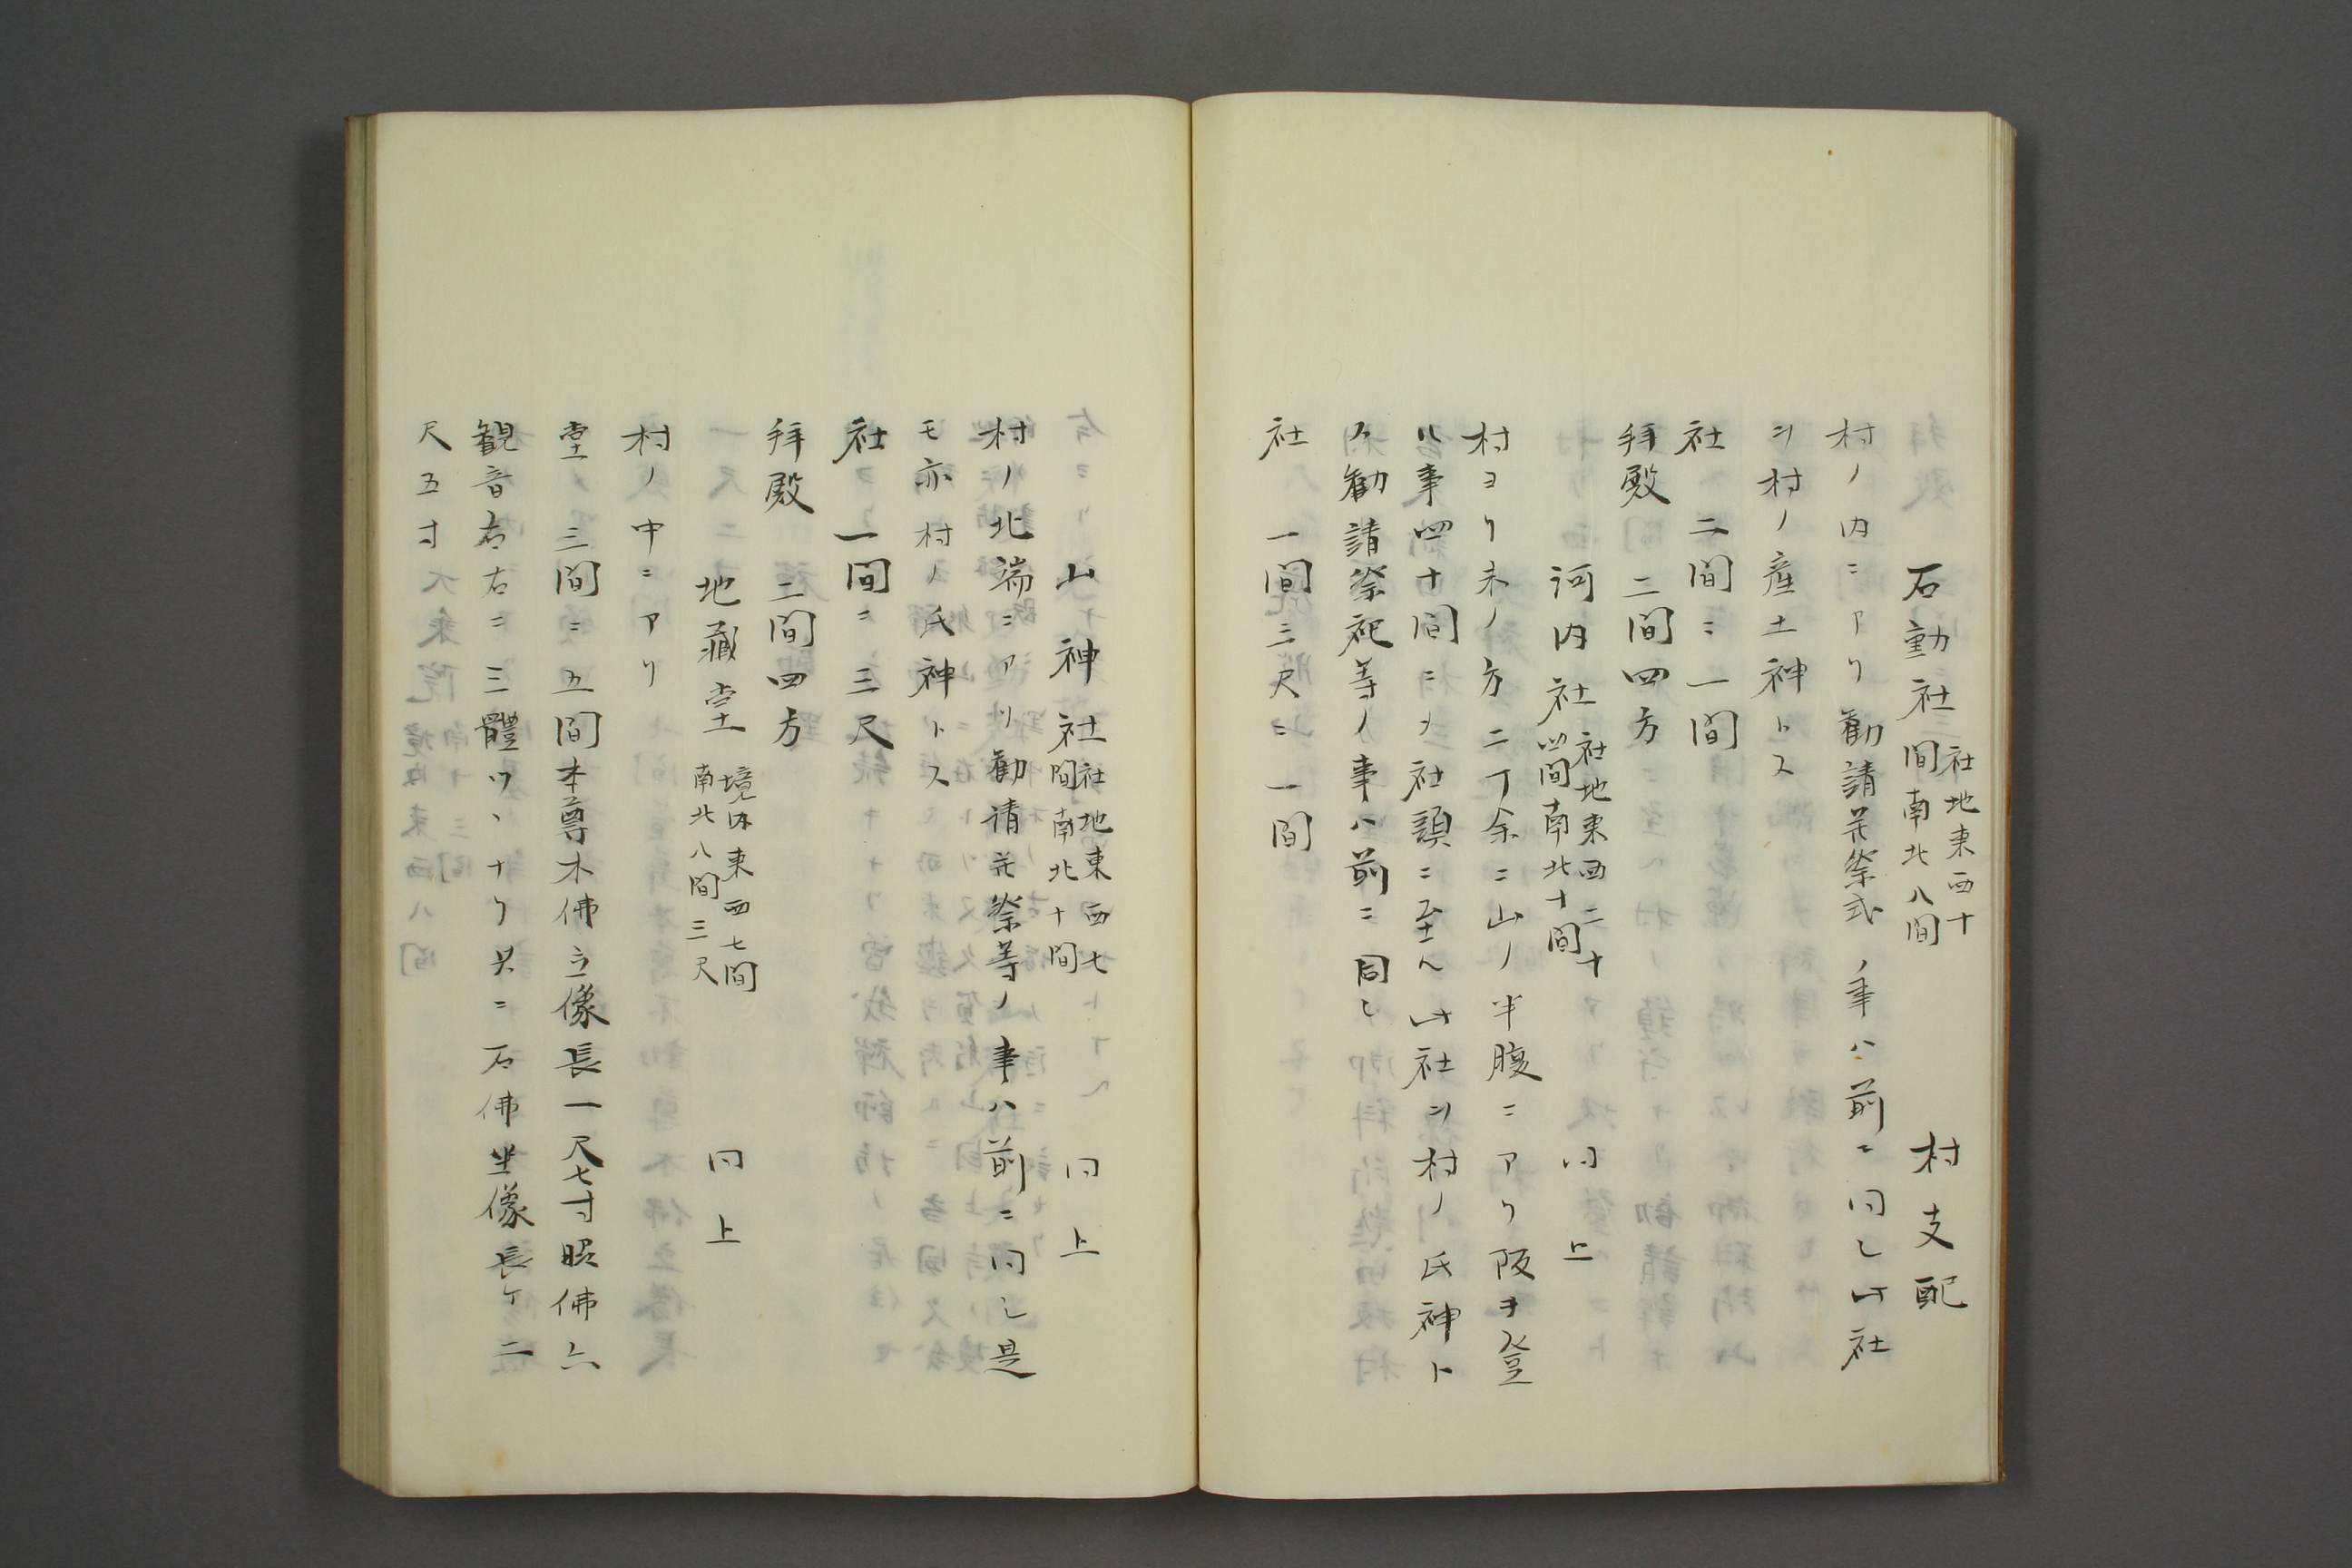 石動社 社地東西十間南北八間 村支配
村ノ内ニアリ勧請并祭式ノ事ハ前ニ同シ此社
ヲ村ノ産土神トス
社 二間ニ一間
拝殿 二間四方
河内社 社地東西二十四間南北十間 同上
村ヨリ未ノ方二丁余ニ山ノ半腹ニアリ阪ヲ登
ル事四十間ニシテ社頭ニ至ル此社ヲ村ノ氏神ト
ス勧請祭祀等ノ事ハ前ニ同シ
社 一間三尺ニ一間
山神社 社地東西七間南北十間 同上
村ノ北端ニアリ勧請并祭等ノ事ハ前ニ同シ是
モ亦村ノ氏神トス
社 一間ニ三尺
拝殿 二間四方
地藏堂 境内東西七間南北八間三尺 同上
村ノ中ニアリ
堂 三間ニ五間本尊木佛立像長一尺七寸脇佛六
観音左右ニ三體ツヽナリ共ニ石佛坐像長ケ二
尺五寸